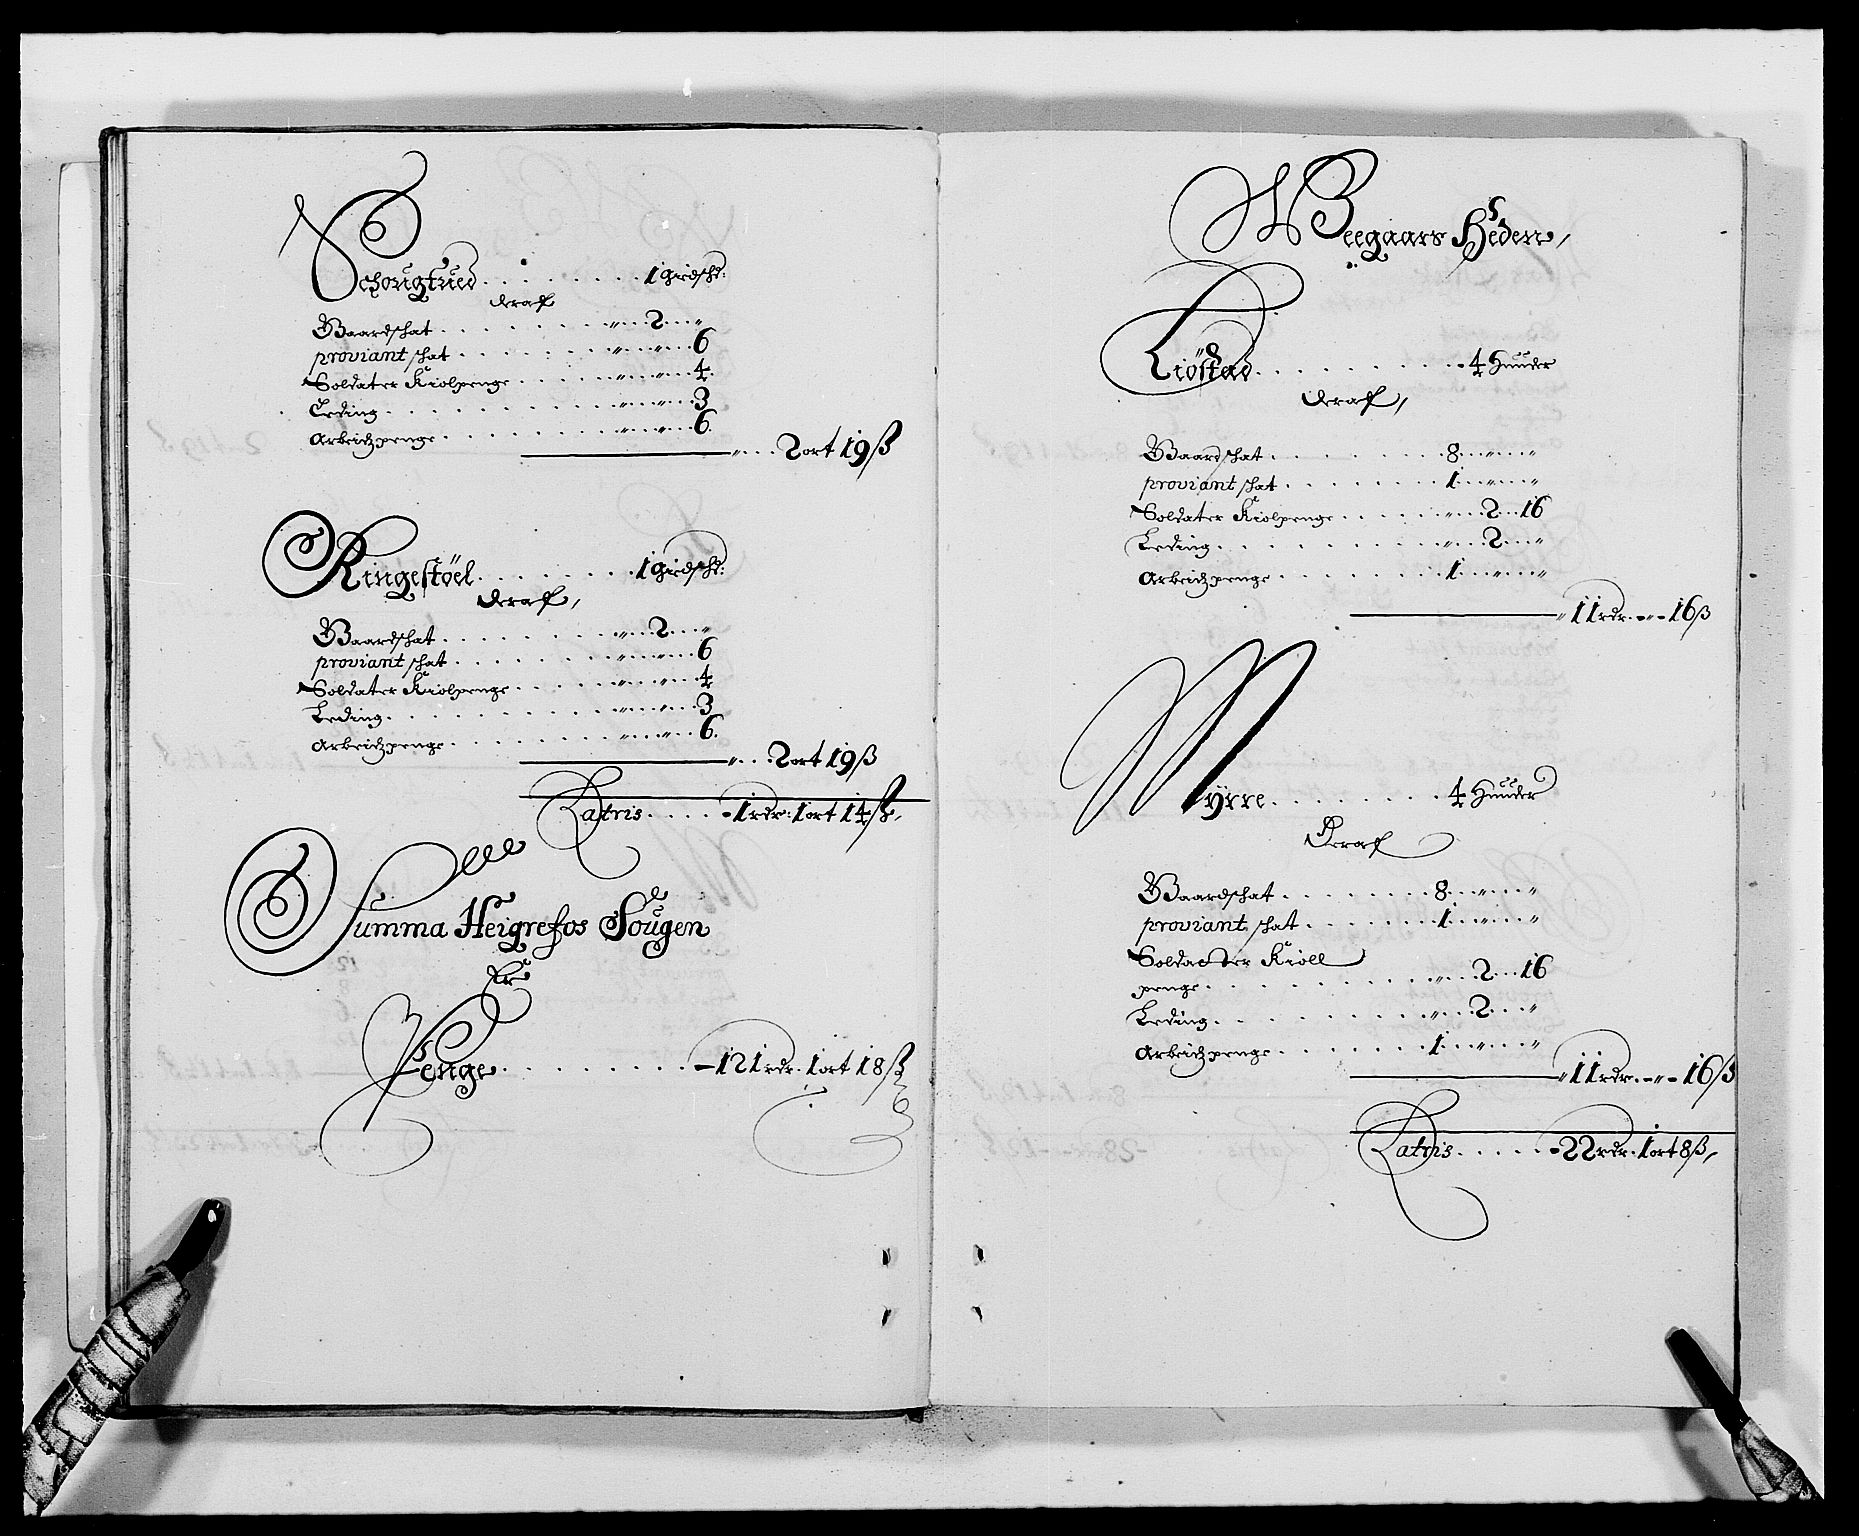 Schougtued . . . . . . . 1 Giedshd:
deraf
Baardschat . . . . . . . „ . . 2 . . „
proviant schat . . . . . . „ . . „ . . 6
Soldater Kiolpenge . . . . „ . . „ . . 4.
Leding . . . . . . . . „ . . „ . . 3
Arbeidzpenge . . . . . . „ . . „ . . 6.
„ . . . 2 ort 19 ß
Ringestöel . . . . . . . 1 Giedshd:
deraf,
Baardschat . . . . . . . „ . . 2 . . „
proviant schat . . . . . . „ . . „ . . 6
Soldater Kiolpenge . . . . „ . . „ . . 4
Leding . . . . . . . . „ . . „ . . 3
Arbeidzpenge . . . . . . „ . . „ . . 6.
„ . . . 2 ort 19 ß
Latris . . . . - 1 rdr: 1 ort 14 ß,
Summa Heigrefos Sougen
Er
Penge . . . . . . . . - 121 rdr. 1 ort 18 ß
Weegaars Heden,
Liöstad . . . . . . . . . 4 Huuder
deraf,
Baardschat . . . . . . . 8 . . „ . . „
proviant schat . . . . . . 1 . . „ . . „
Soldater Kiolpenge . . . . . „ . . 2 . . 16
Leding . . . . . . . . „ . . 2 . . „
Arbeidzpenge . . . . . . . 1 . . „ . . „
„ 11 rdr. - „ - 16 ß
Myrre . . . . . . . . 4 Huuder
Deraf
Baardschat . . . . . . . 8 . . „ . . „
proviant schat . . . . . . 1 . . „ . . „
Soldatter Kioll
penge . . . . . . . . „ . . 2 . . 16
Leding . . . . . . . . „ . . 2 . . „
Arbeidzpenge . . . . . . . 1 . . „ . . „
„ 11 rdr. - „ - 16 ß
Latris . . . . . - 22 rdr. 1 ort 8 ß,